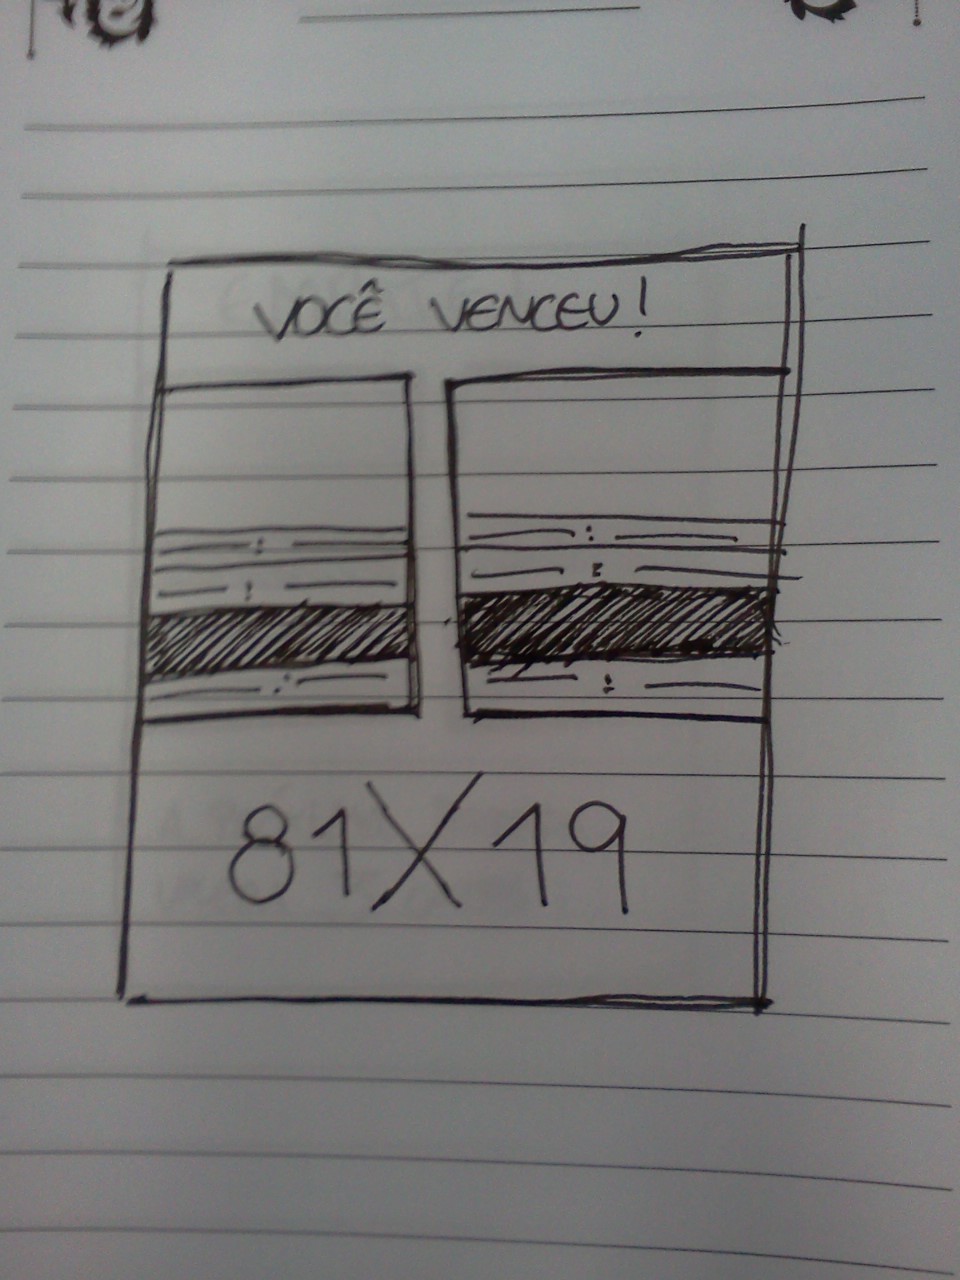 VOCÊ VENCEU!
81X19